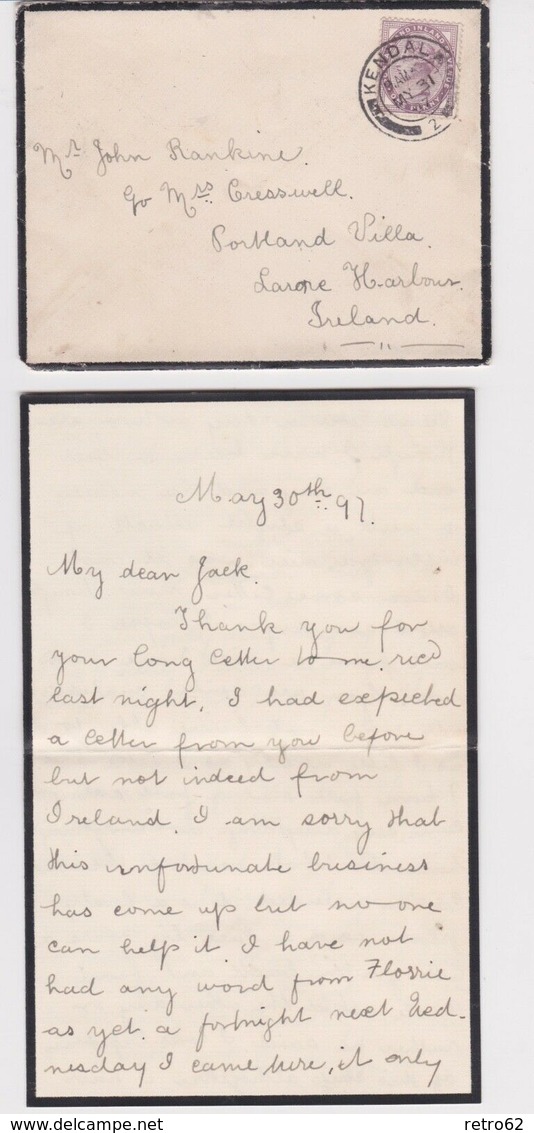 KENDAL
MY 31
97
2
Mr. John Rankine.
c/o Mrs. Cresswell.
Portland Villa.
Larne Harbour.
Ireland.
May 30th. 97.
My dear Jack.
Thank you for
your long letter to me, rec'd
last night. I had expected
a letter from you before
but not indeed from
Ireland. I am sorry that
this unfortunate business
has come up but no one
can help it I have not
had any word from Florrie
as yet. a fortnight next Wed-
nesday I came here, it only
retro62